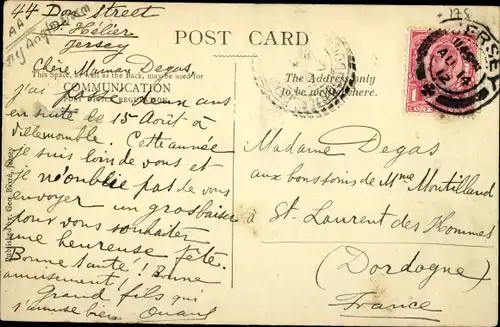 44 Don Street
St. Hélier
Jersey
POST CARD
Chère Maman Degas
This Space, as well as the Back, may be used for
COMMUNICATION
The Address only
to be written here.
J'ai ans
en suite le 15 Août à
Villemomble. Cette année
je suis loin de vous et
je n'oublie pas de vous
envoyer un gros baiser
pour vous souhaiter
une heureuse fête.
Bonne Santé! Bonne
amusement!
Grand fils qui
s'amuse bien
Madame Degas
aux bons soins de Mme Montilland
à St. Laurent des Hommes
(Dordogne)
France
JERSEY
AU 14
12
ONE
175